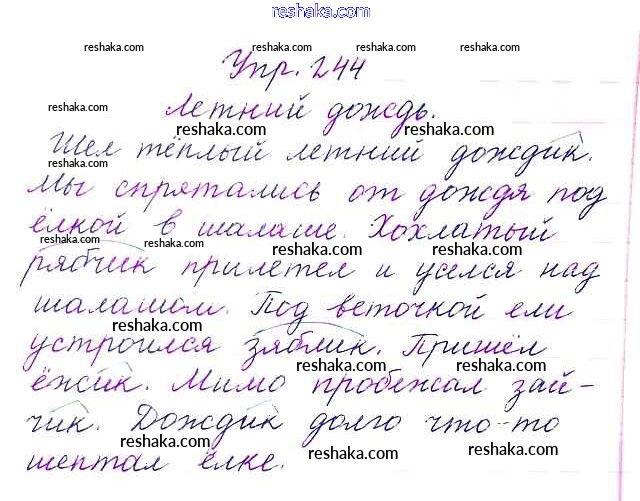 reshaka.com
reshaka.com reshaka.com reshaka.com
Упр. 244
reshaka.com reshaka.com
Летний дождь.
reshaka.com reshaka.com
Шёл тёплый летний дождик.
reshaka.com
Мы спрятались от дождя под
reshaka.com reshaka.com reshaka.com
ёлкой в шалаше. Хохлатый
reshaka.com reshaka.com reshaka.com reshaka.com
рябчик прилетел и уселся над
шалашом. Под веточкой ели
reshaka.com reshaka.com reshaka.com
устроился зяблик. Пришёл
reshaka.com reshaka.com reshaka.com
ёжик. Мимо пробежал зай-
чик. Дождик долго что-то
reshaka.com reshaka.com reshaka.com
шептал ёлке.
reshaka.com